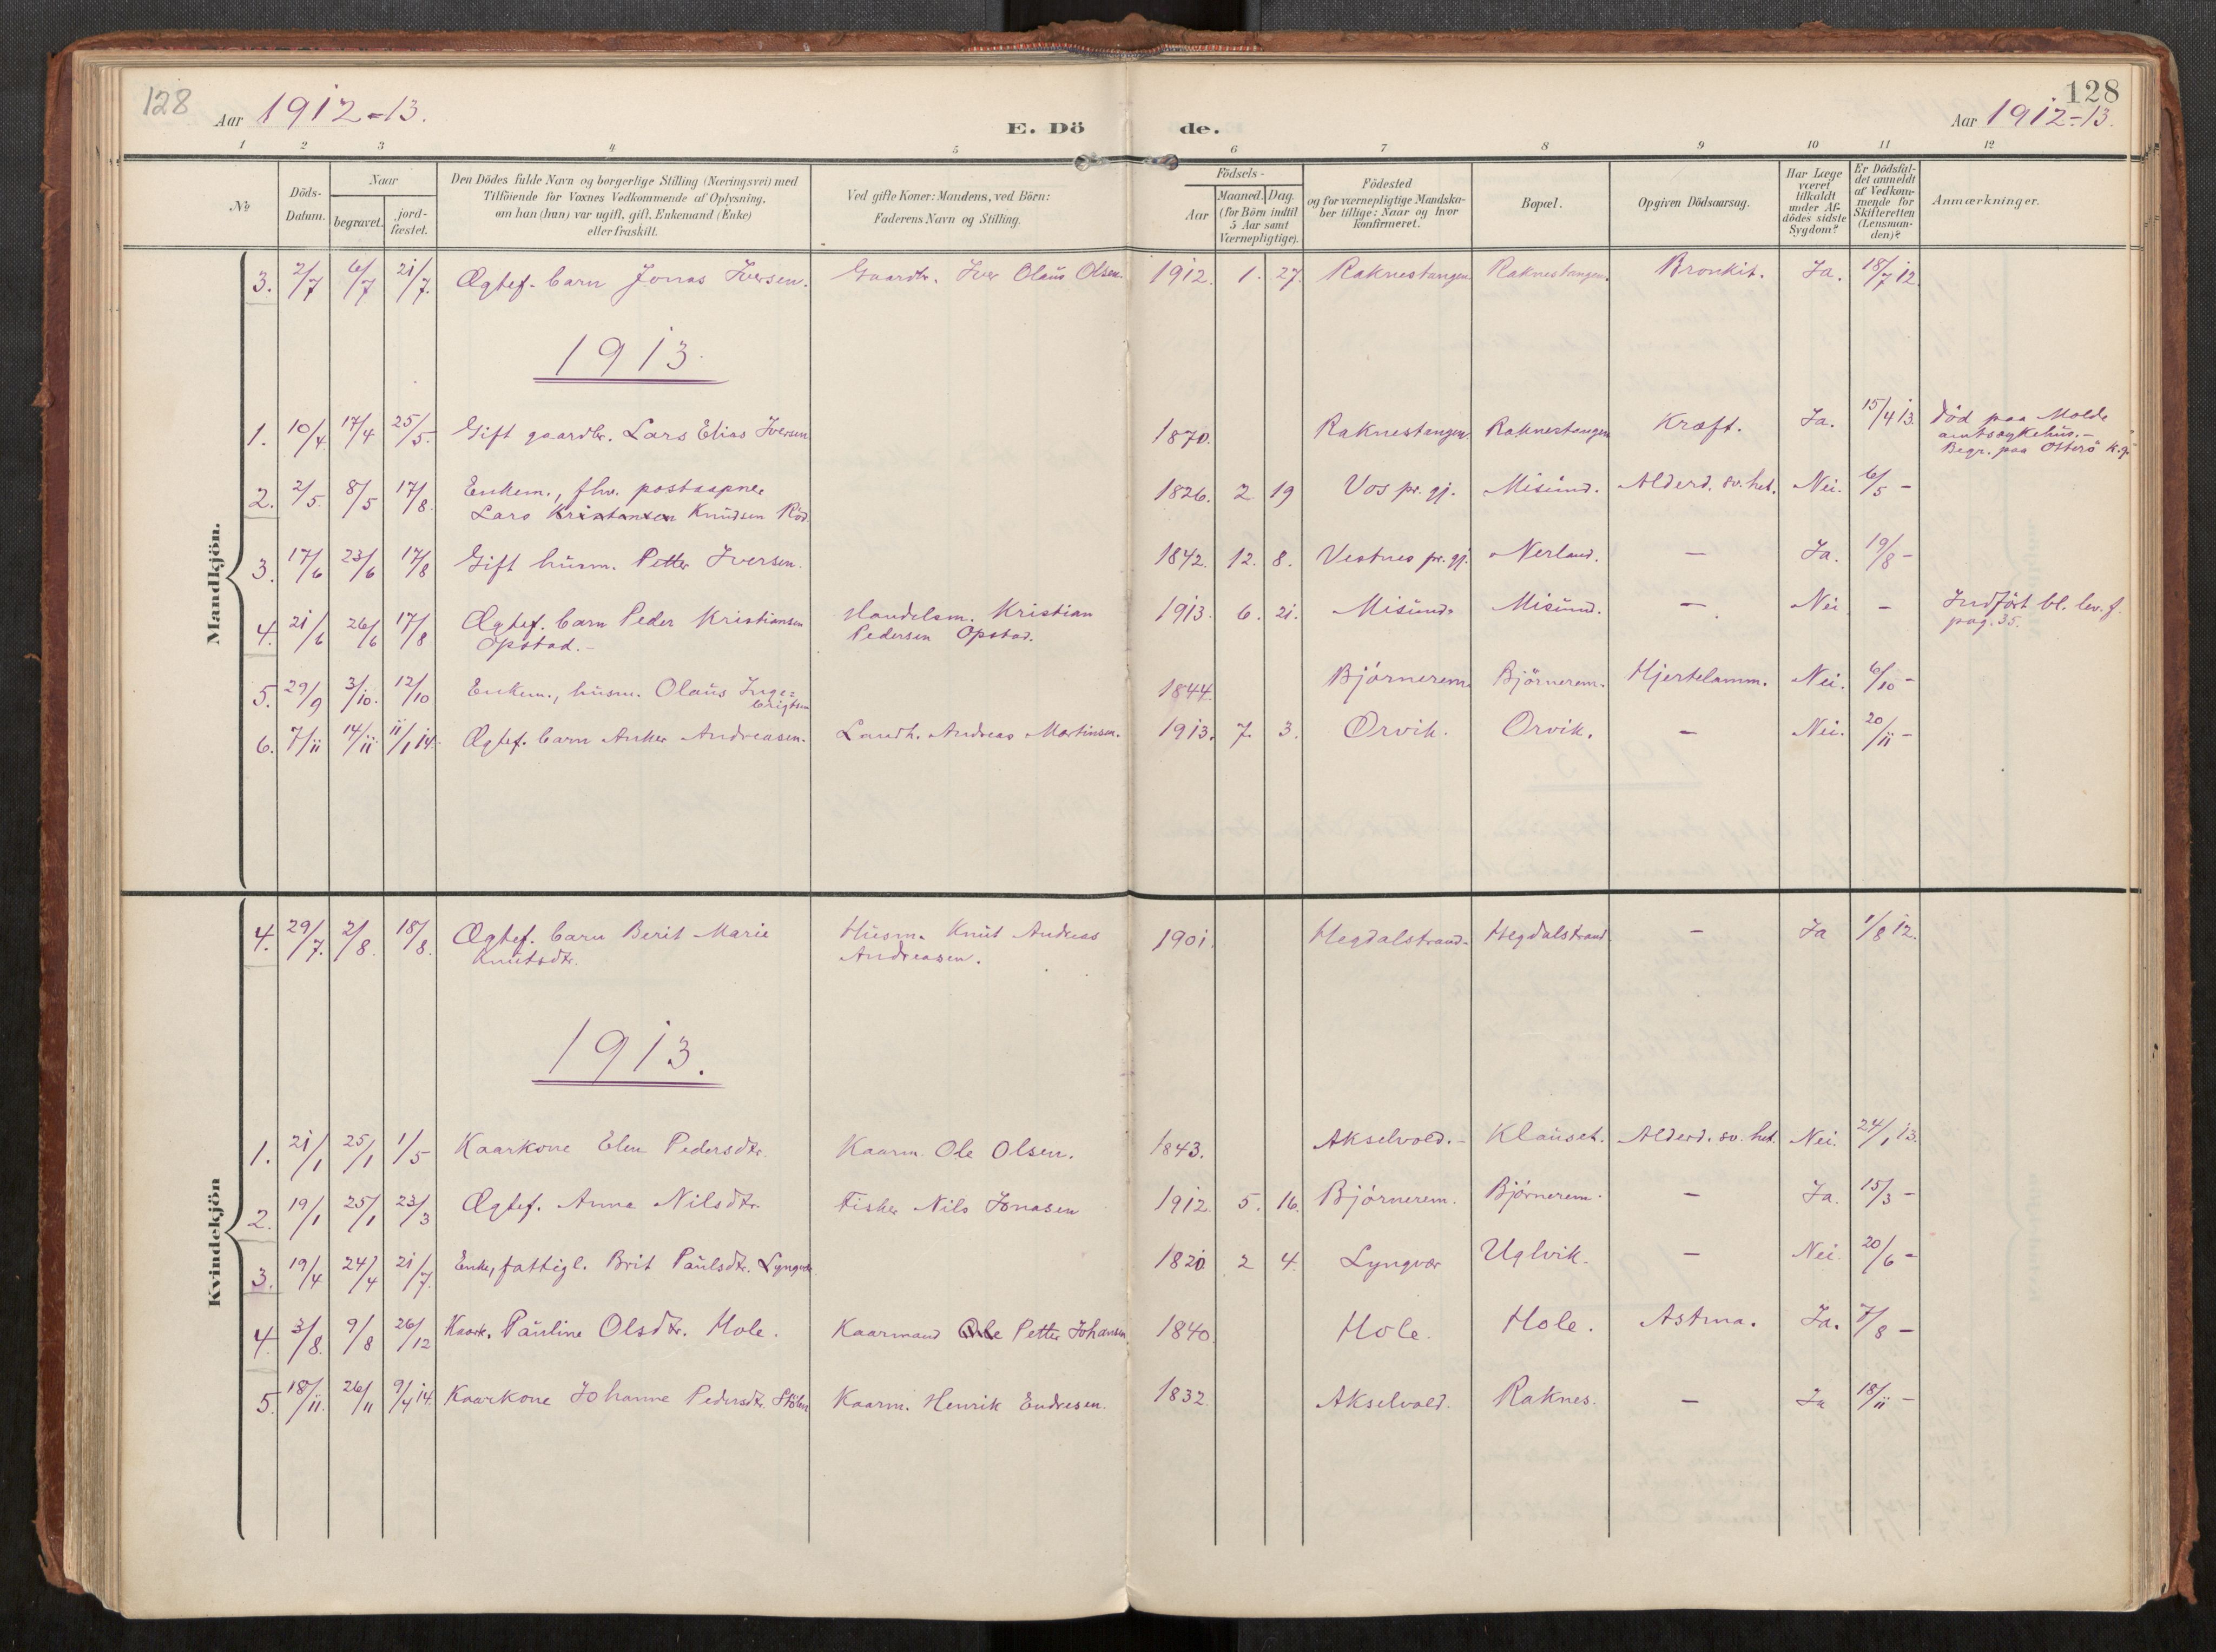 128
128
Aar 1912-13.
E. Dö de.
Aar 1912-13.
1 2 3 4 5 6 7 8 9 10 11 12
№
Döds-
Datum.
Naar
begravet.
jord-
fæstet.
Den Dödes fulde Navn og borgerlige Stilling (Næringsvei) med
Tilföiende for Voxnes Vedkommende af Oplysning,
om han (hun) var ugift, gift, Enkemand (Enke)
eller fraskilt.
Ved gifte Koner: Mandens, ved Börn:
Faderens Navn og Stilling.
Födsels-
Aar
Maaned. Dag.
(for Börn indtil
5 Aar samt
Værnepligtige).
Födested
og for værnepligtige Mandska-
ber tillige: Naar og hvor
konfirmeret.
Bopæl.
Opgiven Dödsaarsag.
Har Læge
været
tilkaldt
under Af-
dödes sidste
Sygdom?
Er Dödsfal-
det anmeldt
af Vedkom-
mende for
Skifteretten
(Lensman-
den)?
Anmærkninger.
Mandkjön.
3. 2/7 6/7 21/7. Ægtef. barn Jonas Iversen. Gaardbr. Iver Olaus Olsen. 1912. 1. 27. Raknestangen Raknestangen. Bronkit. Ja. 18/7 12.
1913.
1. 10/4. 17/4 25/5. Gift gaardbr. Lars Elias Iversen 1870. Raknestangen. Raknestangen Kræft. Ja. 15/4 13. Död paa Molde
amtssykehus.-
Begr. paa Otterö k.g.
2. 2/5. 8/5 17/8. Enkem., fhv. postaapner
Lars Kristensen Knudsen Röd. 1826. 2 19 Vos pr. gj. Misund. Alderd. sv. het. Nei. 6/5 -
3. 17/6 23/6 17/8 Gift husm. Petter Iversen. 1842. 12. 8. Vestnes pr. gj. Nerland. - Ja. 19/8 -
4. 21/6 26/6 17/8 Ægtef. barn Peder Kristiansen
Opstad.- Handelsm. Kristian
Pedersen Opstad. 1913. 6. 21. Misund. Misund. - Nei - Indfört bl. lev. f.
pag. 35.
5. 29/9 3/10. 12/10 Enkem., husm. Olaus Inge=
brigtsen 1844. Björnerem. Björnerem. Hjertelamm. Nei. 6/10 -
6. 7/11 14/11 11/1 14. Ægtef. barn Anker Andreasen. Landh. Andreas Martinsen. 1913. 7. 3. Orvik. Orvik. - Nei. 20/11 -
Kvindekjön
4. 29/7. 2/8. 18/8. Ægtef. barn Berit Marie
Knutsdtr. Husm. Knut Andreas
Andreasen. 1901. Hegdalstrand. Hegdalstrand. - Ja 1/8 12.
1913.
1. 21/1 25/1 1/5 Kaarkone Elen Pedersdtr. Kaarm. Ole Olsen. 1843. Akselvold.- Klauset. Alderd. sv. het. Nei. 24/1 13.
2. 19/1 25/1 23/3 Ægtef. Anna Nilsdtr. Fisker Nils Jonasen 1912. 5. 16. Björnerem. Björnerem. - Ja. 15/3 -
3. 19/4 24/4 21/7. Enke, fattigl. Brit Paulsdtr. Lyngvær 1820 2 4. Lyngvær Uglvik. - Nei. 20/6 -
4. 3/8. 9/8 26/12 Kaark. Pauline Olsdtr. Hole. Kaarmand Ole Petter Johansen. 1840. Hole. Hole. Astma. Ja. 7/8 -
5. 18/11. 26/11 9/4 14. Kaarkone Johanne Pedersdtr. Stölen Kaarm. Henrik Endresen. 1832. Akselvold. Raknes. - Ja 18/11 -